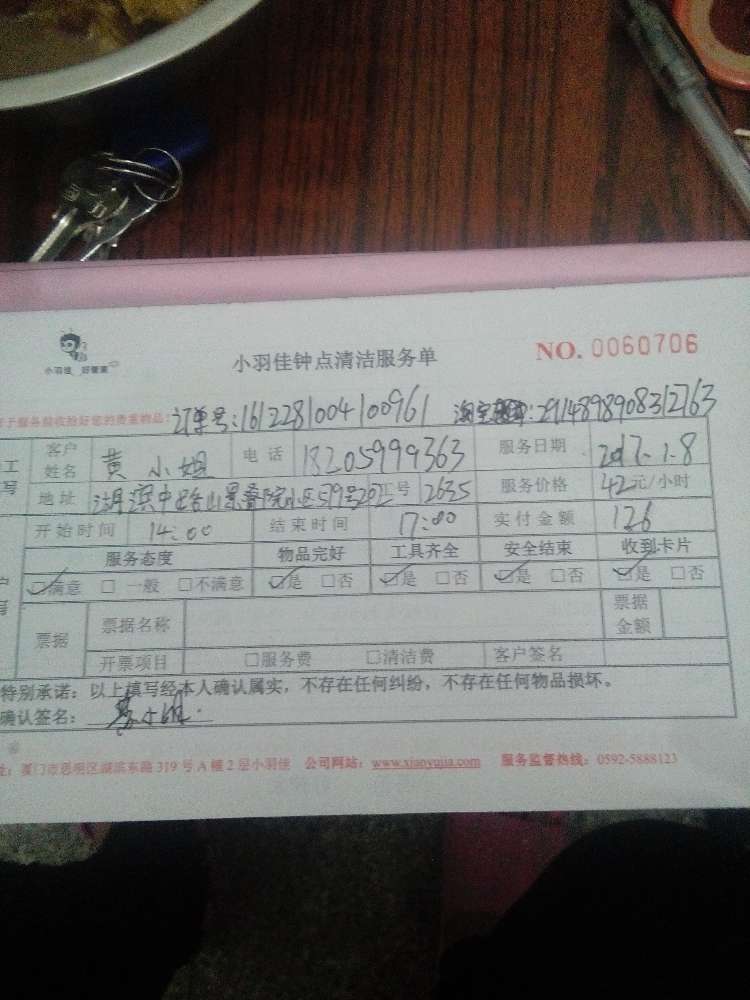 小羽佳 好管家
小羽佳钟点清洁服务单 NO. 0060706
于服务前收拾好您的贵重物品!
订单号:1612281004100961 淘宝 :2914898908312763
客户姓名 黄小姐 电话 18205999363 服务日期 2017.1.8
地址 湖滨中路 山景叠院小区579号202 工号 2635 服务价格 42元/小时
开始时间 14:00 结束时间 17:00 实付金额 126
服务态度 物品完好 工具齐全 安全结束 收到卡片
☑满意 □一般 □不满意 ☑是 □否 ☑是 □否 ☑是 □否 ☑是 □否
票据 票据名称 票据金额
开票项目 □服务费 □清洁费 客户签名
特别承诺:以上填写经本人确认属实,不存在任何纠纷,不存在任何物品损坏。
确认签名: 黄小姐
址:厦门市思明区湖滨东路319号A幢2层小羽佳 公司网站:www.xianyujia.com 服务监督热线:0592-5888123